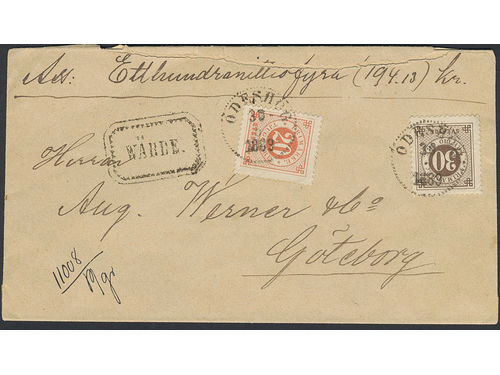 Ass: Etthundranittiofyra (194.13) kr.
WÄRDE.
ÖDESHÖG
30
1889
20
ÖDESHÖG
30
1889
30
Herrar
Aug. Werner & Co
Göteborg
11008